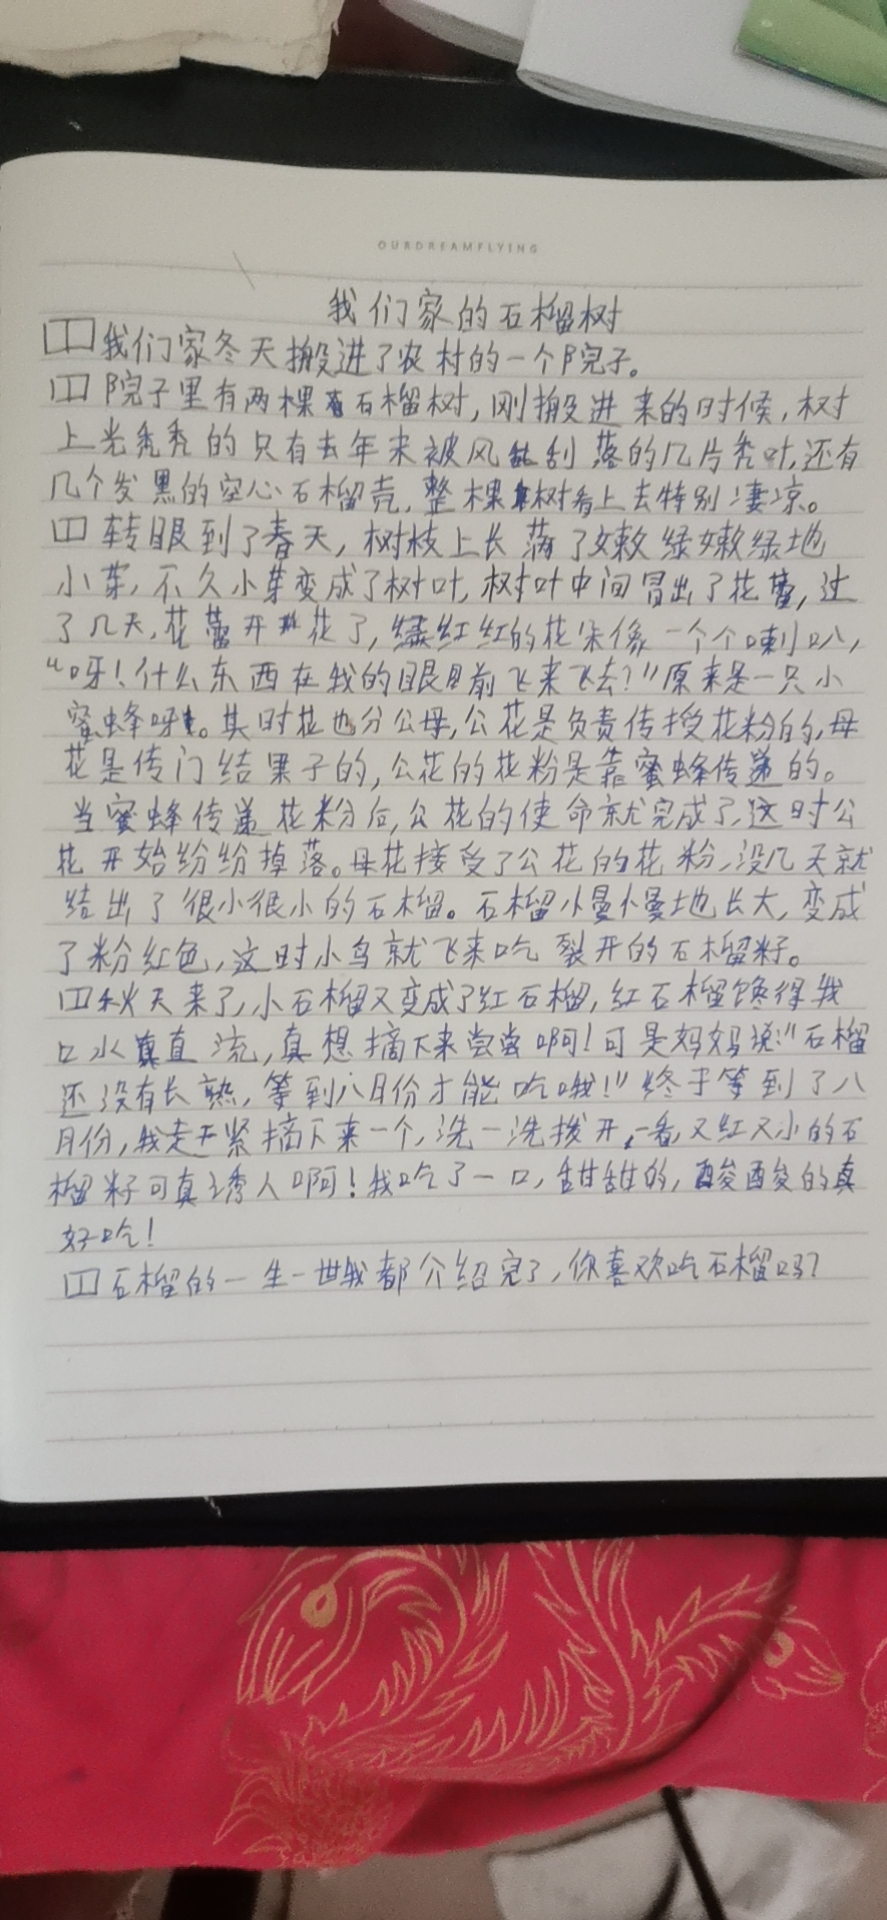 OURDREAMFLYING
我们家的石榴树
我们家冬天搬进了农村的一个院子。
院子里有两棵石榴树，刚搬进来的时候，树
上光秃秃的只有去年未被风刮落的几片秃叶，还有
几个发黑的空心石榴壳，整棵树看上去特别凄凉。
转眼到了春天，树枝上长满了嫩绿嫩绿地
小芽，不久小芽变成了树叶，树叶中间冒出了花蕾，过
了几天，花蕾开花了，红红的花朵像一个个喇叭，
“呀！什么东西在我的眼前飞来飞去？”原来是一只小
蜜蜂呀。其时花也分公母，公花是负责传授花粉的，母
花是传门结果子的，公花的花粉是靠蜜蜂传递的。
当蜜蜂传递花粉后，公花的使命就完成了，这时公
花开始纷纷掉落。母花接受了公花的花粉，没几天就
结出了很小很小的石榴。石榴慢慢地长大，变成
了粉红色，这时小鸟就飞来吃裂开的石榴籽。
秋天来了，小石榴又变成了红石榴，红石榴馋得我
口水直流，真想摘下来尝尝啊！可是妈妈说：“石榴
还没有长熟，等到八月份才能吃哦！”终于等到了八
月份，我赶紧摘下来一个，洗一洗拨开，一看，又红又小的石
榴籽可真诱人啊！我吃了一口，甜甜的，酸酸的真
好吃！
石榴的一生一世我都介绍完了，你喜欢吃石榴吗？